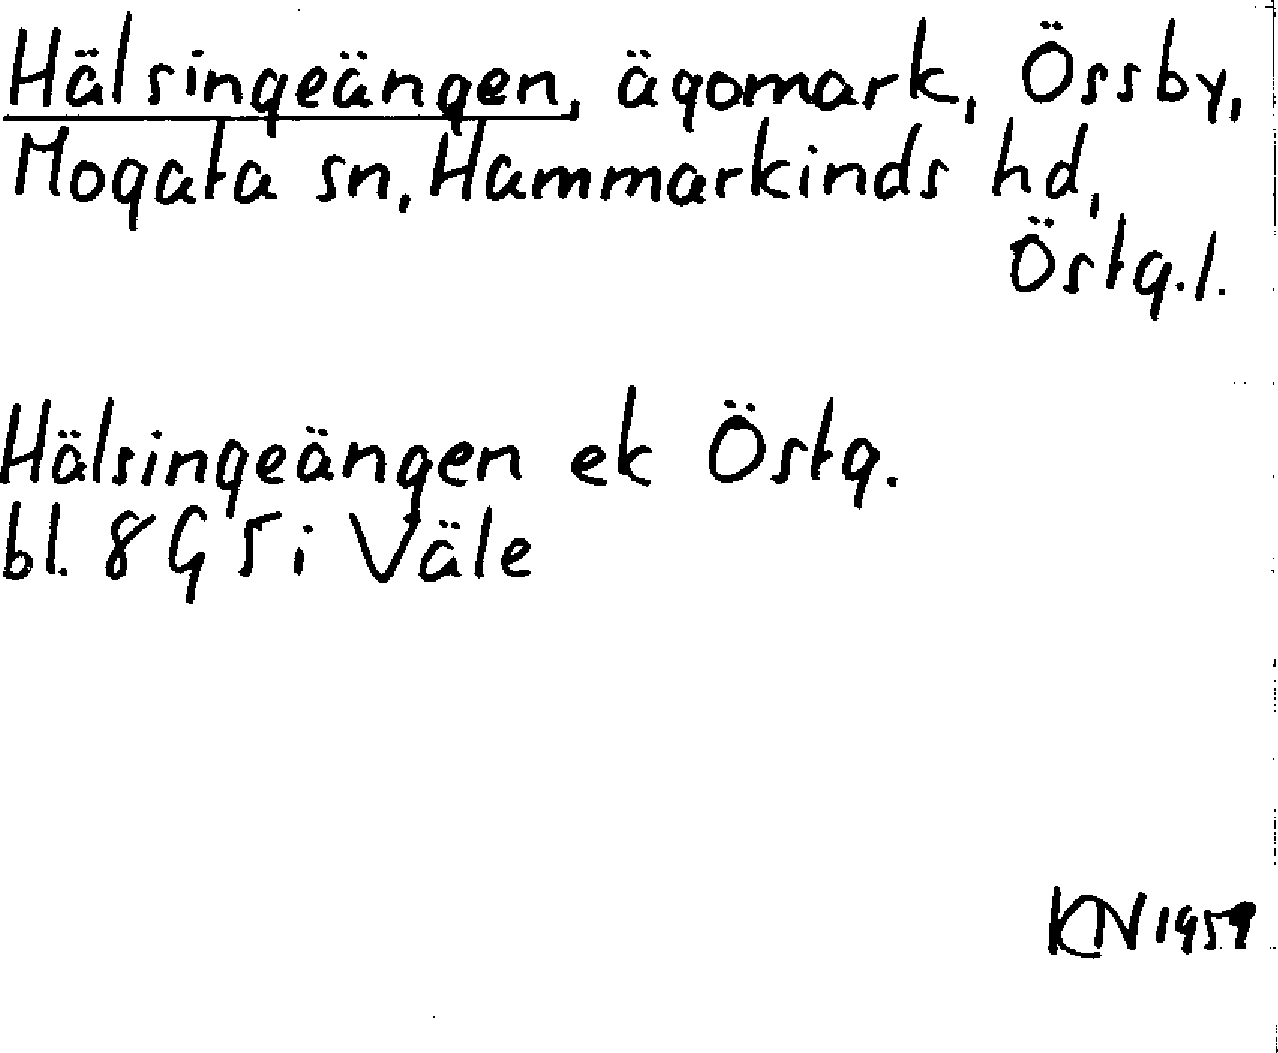 Hälsingeängen, ägomark, Össby,
Mogata sn, Hammarkinds hd,
Östg.l.
Hälsingeängen ek Östg.
bl. 8G5i Väle
KN 1959